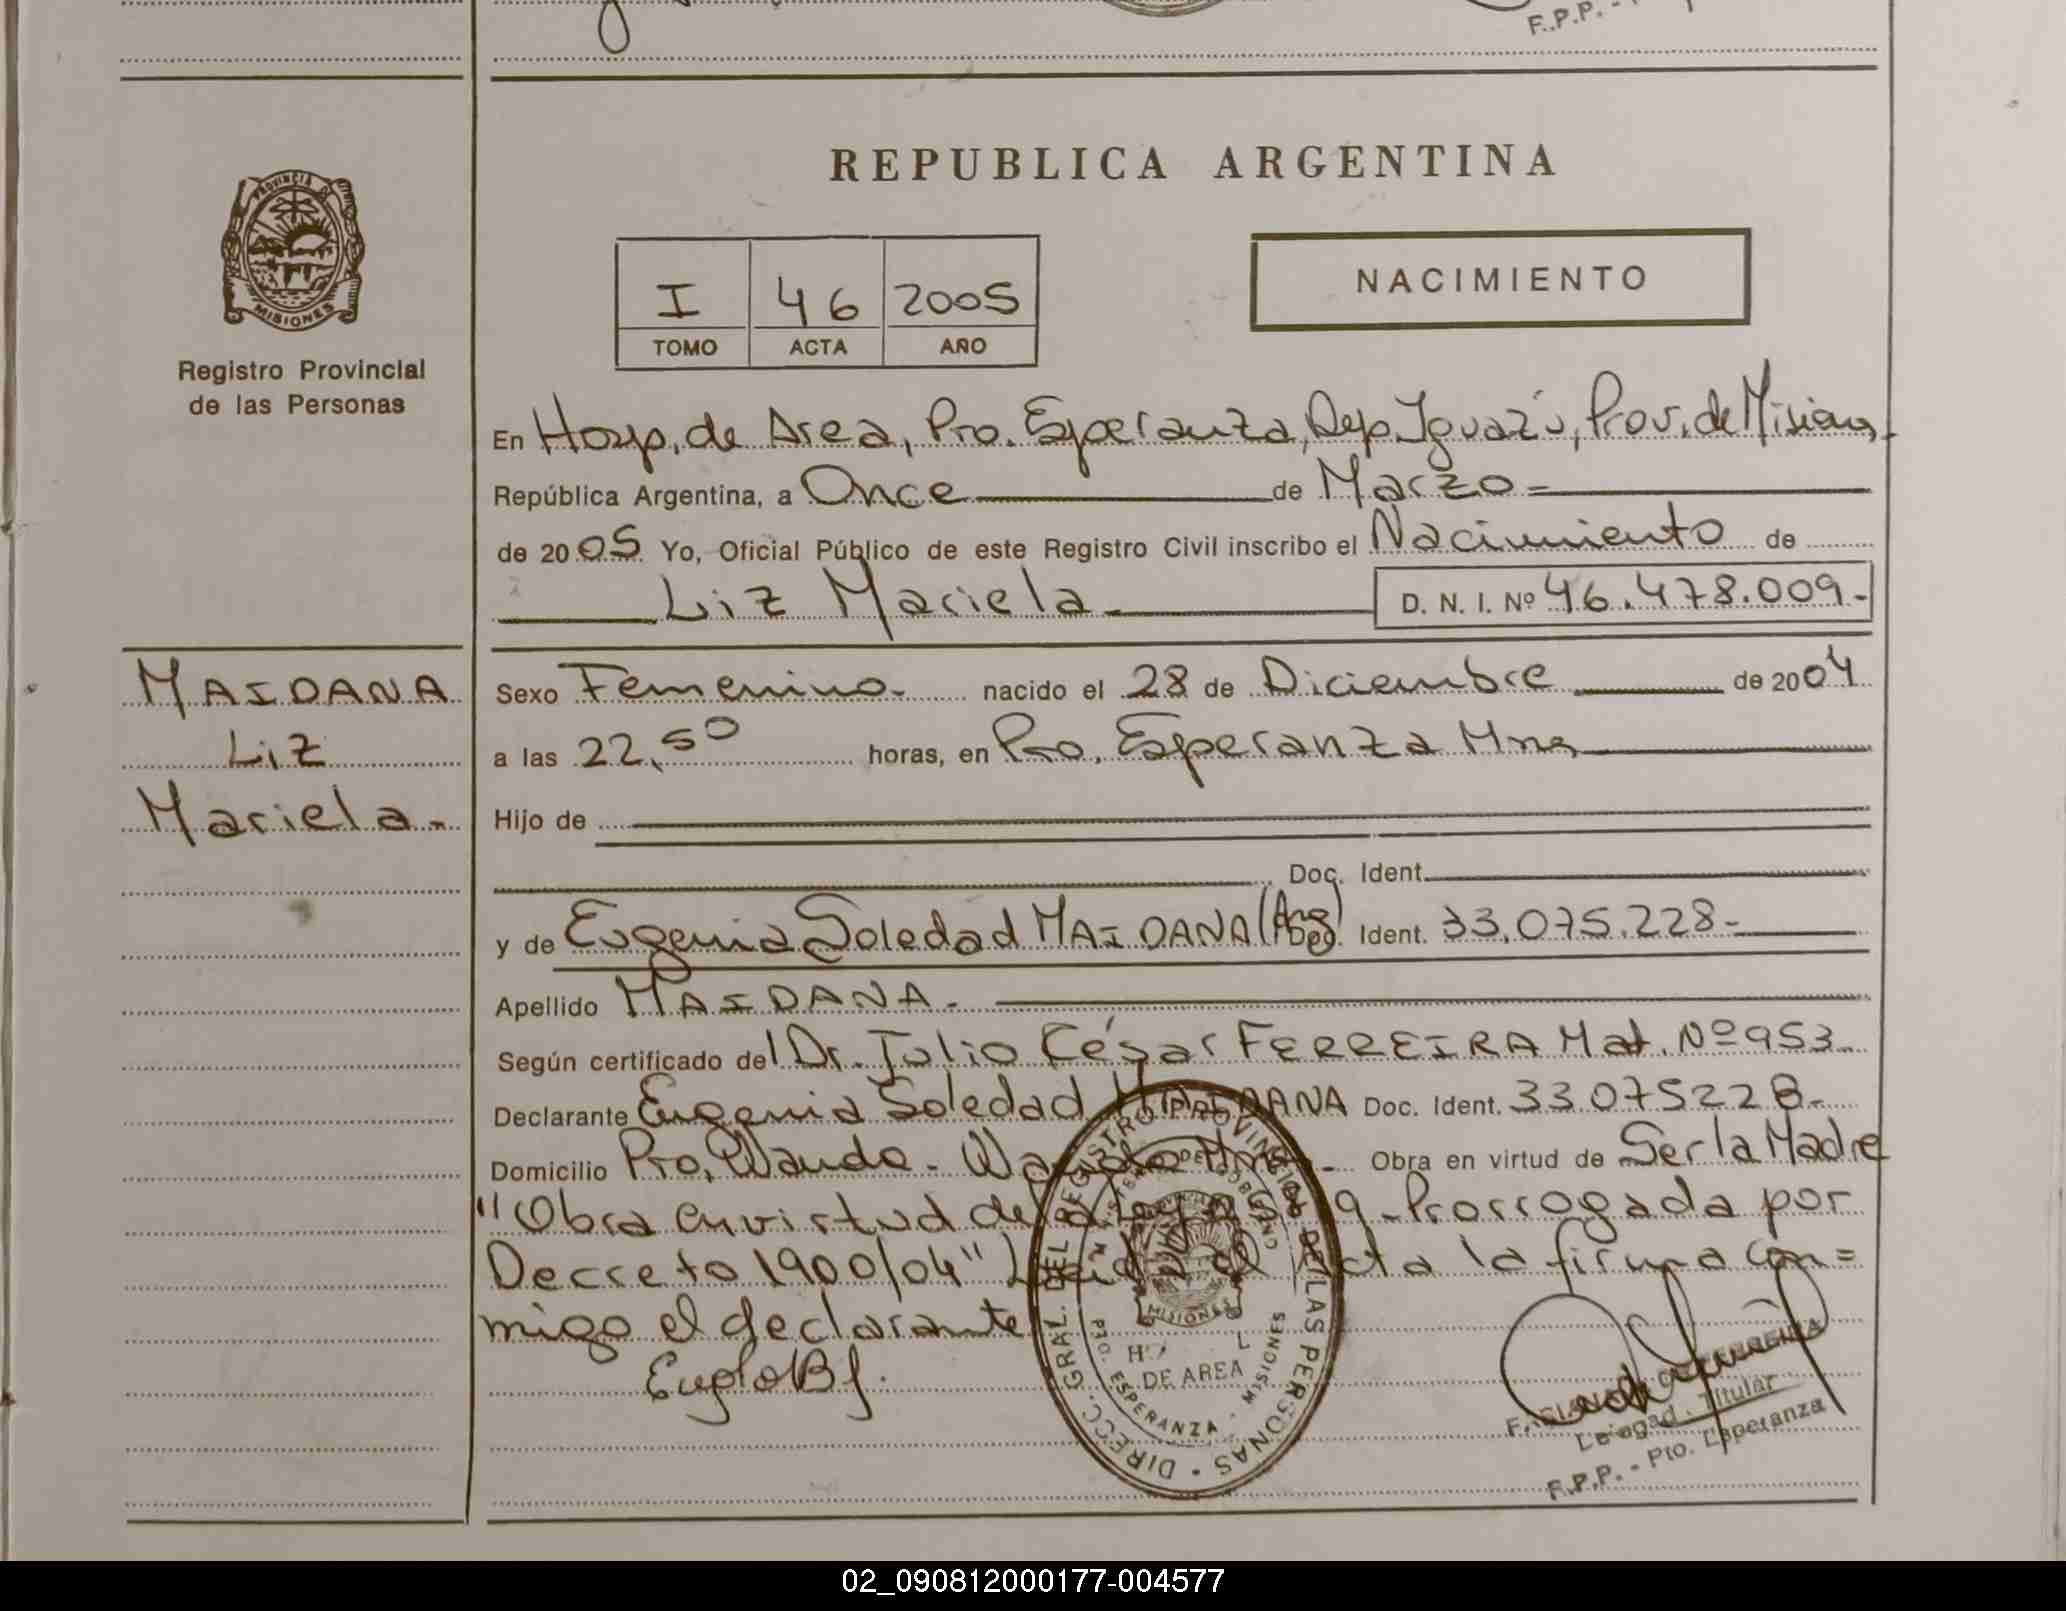 F.P.P. -
REPUBLICA ARGENTINA
PROVINCIA DE
MISIONES
Registro Provincial
de las Personas
I 46 2005
TOMO ACTA AÑO
NACIMIENTO
En Hosp. de Area, Pto. Esperanza, Dep. Iguazú, Prov. de Misiones
República Argentina, a Once de Marzo =
de 2005 Yo, Oficial Público de este Registro Civil inscribo el Nacimiento de
Liz Mariela - D. N. I. Nº 46.478.009.-
MAIDANA
Liz
Mariela.-
Sexo Femenino.- nacido el 28 de Diciembre de 2004
a las 22,50 horas, en Pto. Esperanza Mnes
Hijo de
Doc. Ident.
y de Eugenia Soledad MAIDANA (Arg) Doc. Ident. 33.075.228-
Apellido MAIDANA.-
Según certificado del Dr. Julio César FERREIRA Mat. Nº 953
Declarante Eugenia Soledad MAIDANA Doc. Ident. 33075228-
Domicilio Pto. Wanda - Wanda Mnes. - Obra en virtud de Ser la Madre
"Obra en virtud de la Ley - Prorrogada por
Decreto 1900/04" Leida el Acta la firma con=
migo el declarante
DIRECC. GRAL. DEL REGISTRO PROVINCIAL DE LAS PERSONAS
MINISTERIO DE GOBIERNO
MISIONES
DE AREA
PTO. ESPERANZA - MISIONES
Titular
F.P.P. - Pto. Esperanza
02_090812000177-004577